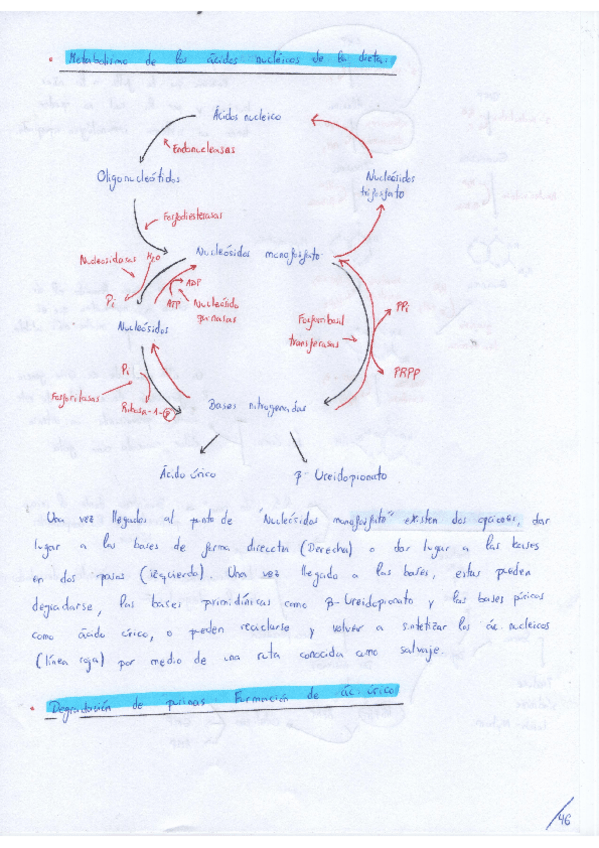 Metabolismo de los ácidos nucleicos de la dieta:
Ácidos nucleico
Endonucleasas
Oligonucleótidos
Nucleósidos
trifosfato
Fosfodiesterasas
Nucleósidos monofosfato
Nucleosidasas
H₂O
ADP
Pi
ATP
Nucleósido
quinasas
PPi
Nucleósidos
Fosforribosil
transferasas
Pi
PRPP
Fosforilasas
Ribosa-1-P
Bases nitrogenadas
Ácido úrico
β-Ureidopionato
Una vez llegados al punto de "Nucleósidos monofosfato" existen dos opciones, dar
lugar a las bases de forma directa (Derecha) o dar lugar a las bases
en dos pasos (izquierda). Una vez llegado a las bases, estas pueden
degradarse, las bases pirimidínicas como β-Ureidopionato y las bases púricas
como ácido úrico, o pueden reciclarse y volver a sintetizar los ác. nucleicos
(línea roja) por medio de una ruta conocida como salvaje.
Degradación de purinas Formación de ác. úrico
46